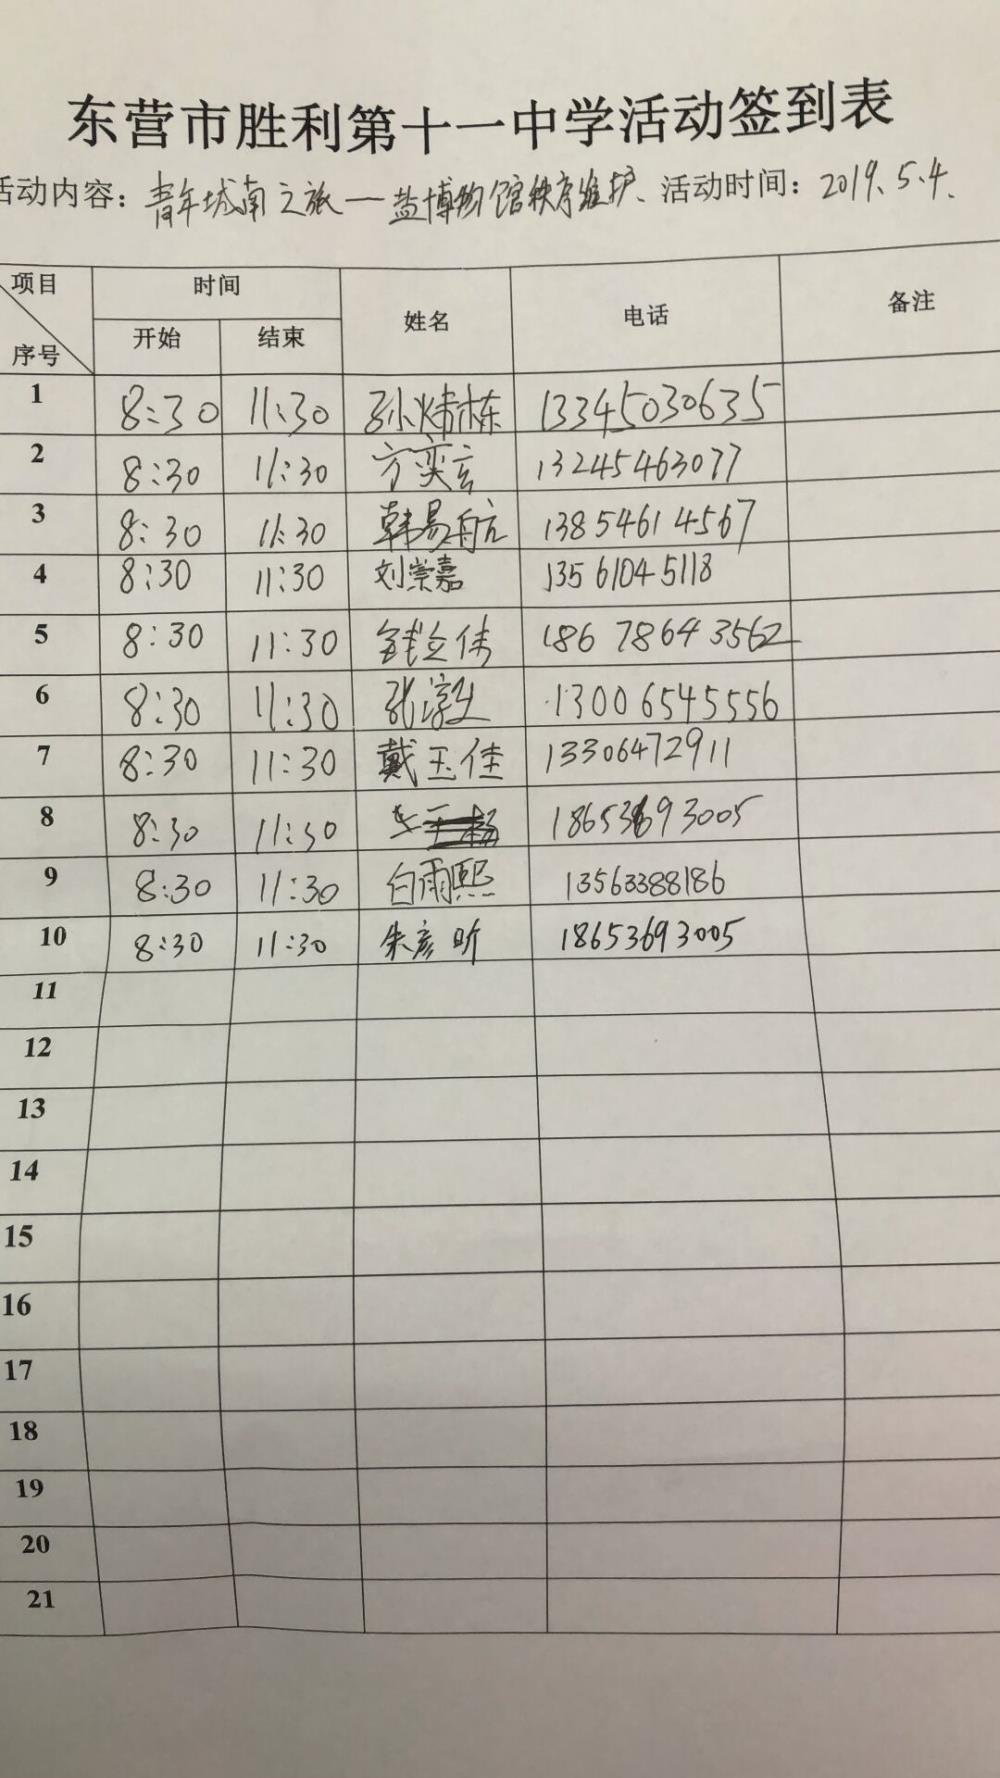 东营市胜利第十一中学活动签到表
活动内容：青年城南之旅——盐博物馆秩序维护、活动时间：2019.5.4.
项目 时间 姓名 电话 备注
序号 开始 结束
1 8:30 11:30 孙炜栋 13345030635
2 8:30 11:30 方奕言 13245463077
3 8:30 11:30 韩易航 13854614567
4 8:30 11:30 刘崇嘉 13561045118
5 8:30 11:30 钱立伟 18678643562
6 8:30 11:30 张 13006545556
7 8:30 11:30 戴玉佳 13306472911
8 8:30 11:30 18653693005
9 8:30 11:30 白雨熙 13563388186
10 8:30 11:30 朱彦昕 18653693005
11
12
13
14
15
16
17
18
19
20
21